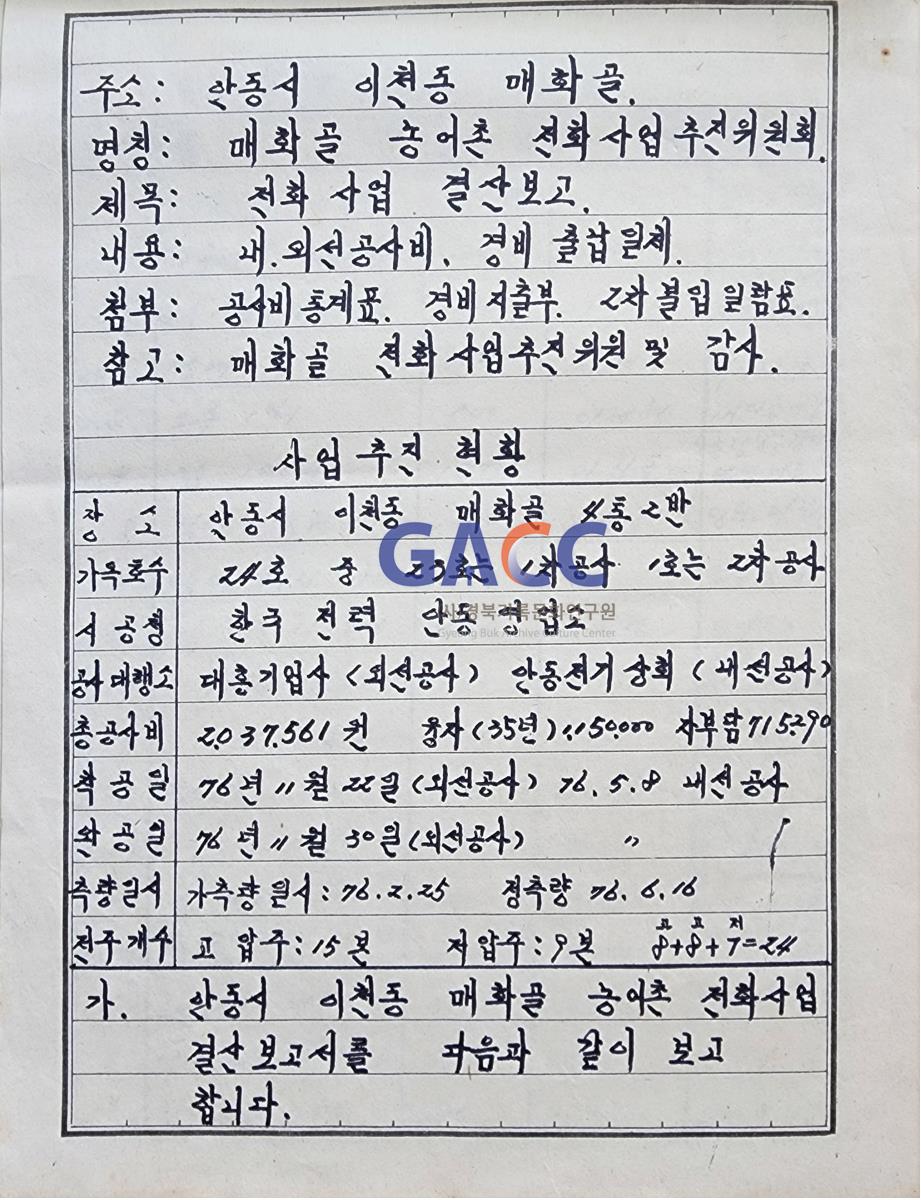 주소: 안동시 이천동 매화골.
명칭: 매화골 농어촌 전화사업추진위원회.
제목: 전화 사업 결산보고.
내용: 내.외선공사비, 경비 출납일체.
첨부: 공사비통계표. 경비지출부. 2차불입일람표.
참고: 매화골 전화사업추진위원 및 감사.
사업 추진 현황
장소 안동시 이천동 매화골 4통 2반
가옥호수 24호 중 23호는 1차공사 1호는 2차공사
시공청 한국 전력 안동 영업소
공사대행소 대흥기업사 (외선공사) 안동전기상회 (내선공사)
총공사비 2.037.561원 융자(35년) 1,150.000 자부담 715.290
착공일 76년 11월 22일 (외선공사) 76.5.8 내선공사
완공일 76년 11월 30일 (외선공사) 〃
측량일시 가측량일시: 76.2.25 정측량 76.6.16
전주개수 고압주: 15본 저압주: 9본 고8+고8+저7=24
가. 안동시 이천동 매화골 농어촌 전화사업
결산보고서를 다음과 같이 보고
합니다.
GACC
(사)경북기록문화연구원
Gyeong Buk Archive Culture Center